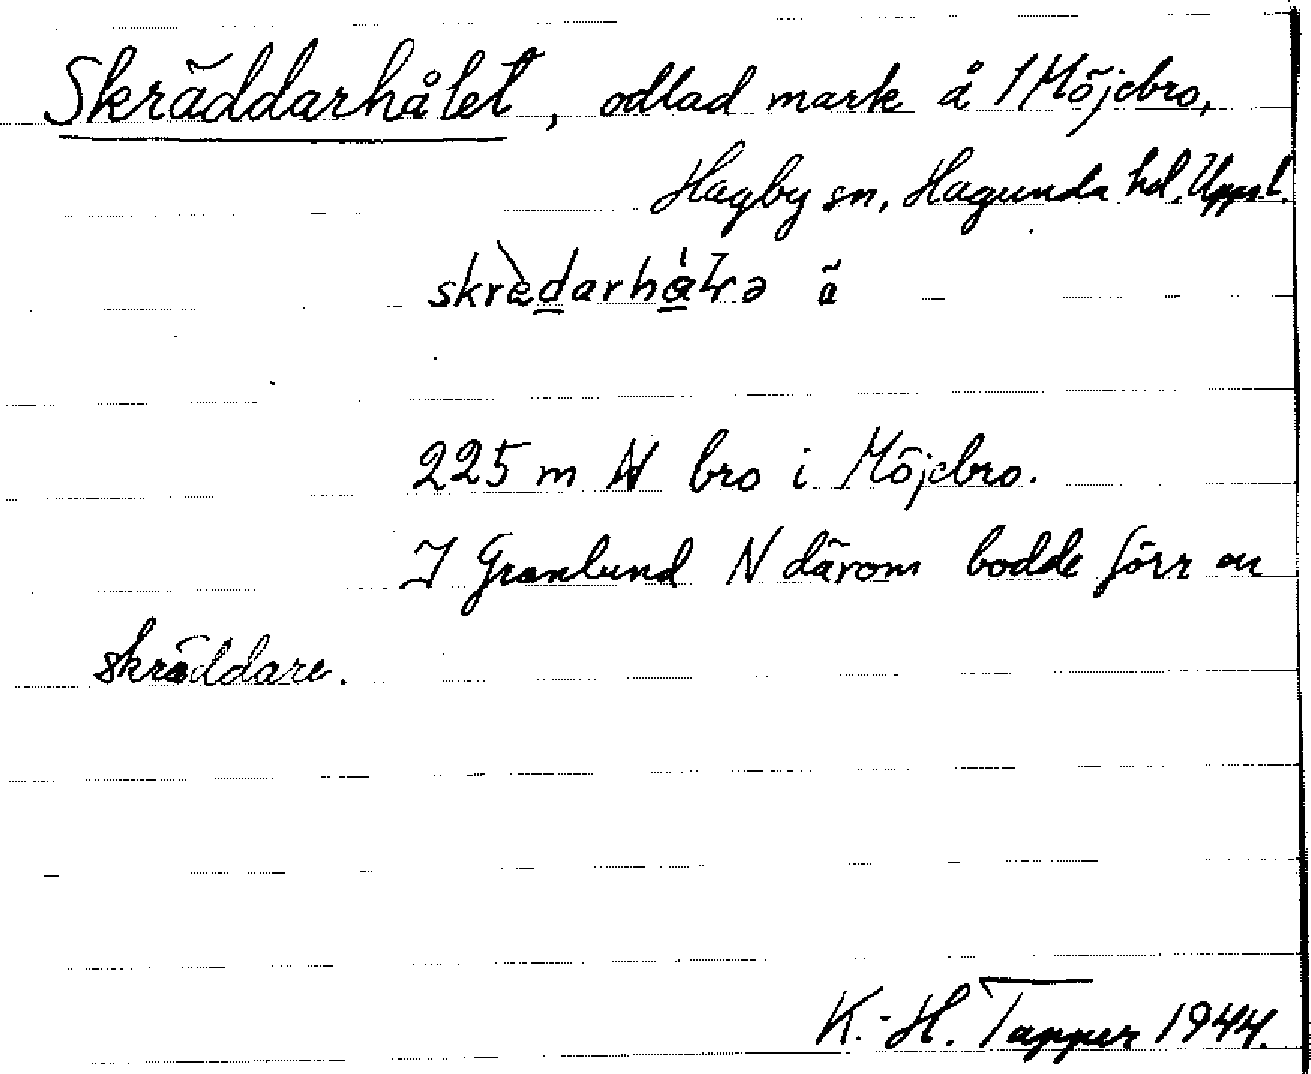 Skräddarhålet, odlad mark å 1 Möjebro,
Hagby sn, Hagunda hd, Uppl.
skrèdarhå̀łə å
225 m N bro i Möjebro.
I Granlund N därom bodde förr en
skräddare.
K.-H. Tapper 1944.